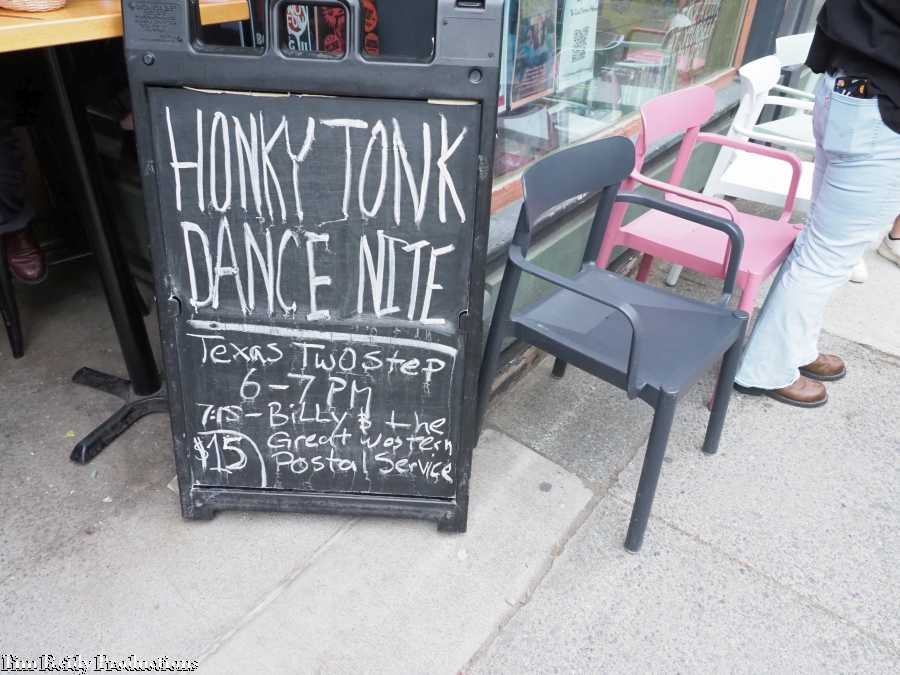 HONKY TONK
DANCE NITE
Texas Two Step
6-7 PM
7:15- Billy & the
$15 Great Western
Postal Service
Tim Reidy Productions